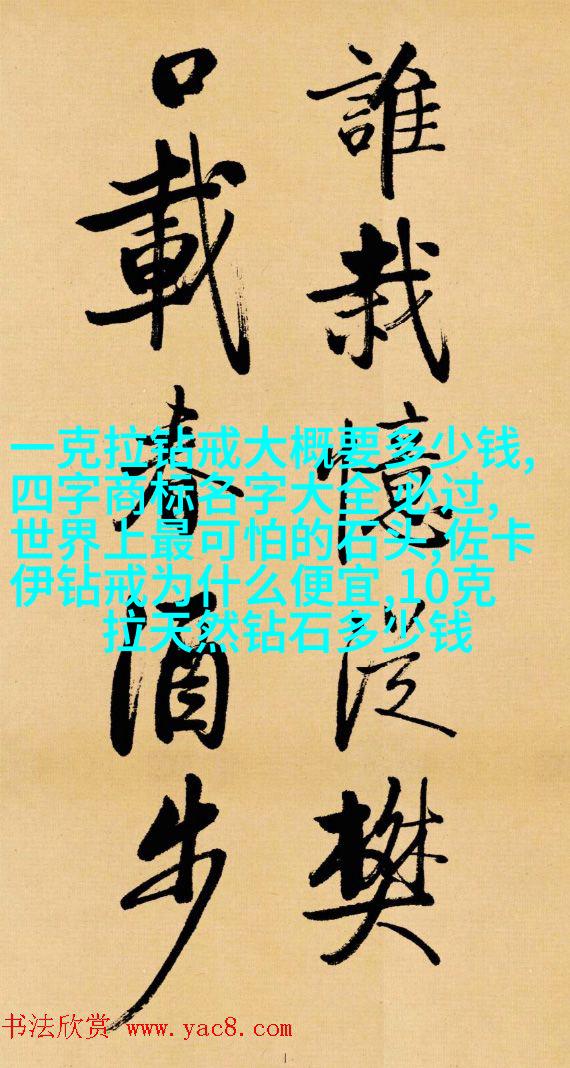 誰栽憶從樊
口載春酒步
一克拉钻戒大概要多少钱,
四字商标名字大全 必过,
世界上最可怕的石头,佐卡
伊钻戒为什么便宜,10克
拉天然钻石多少钱
书法欣赏 www.yac8.com